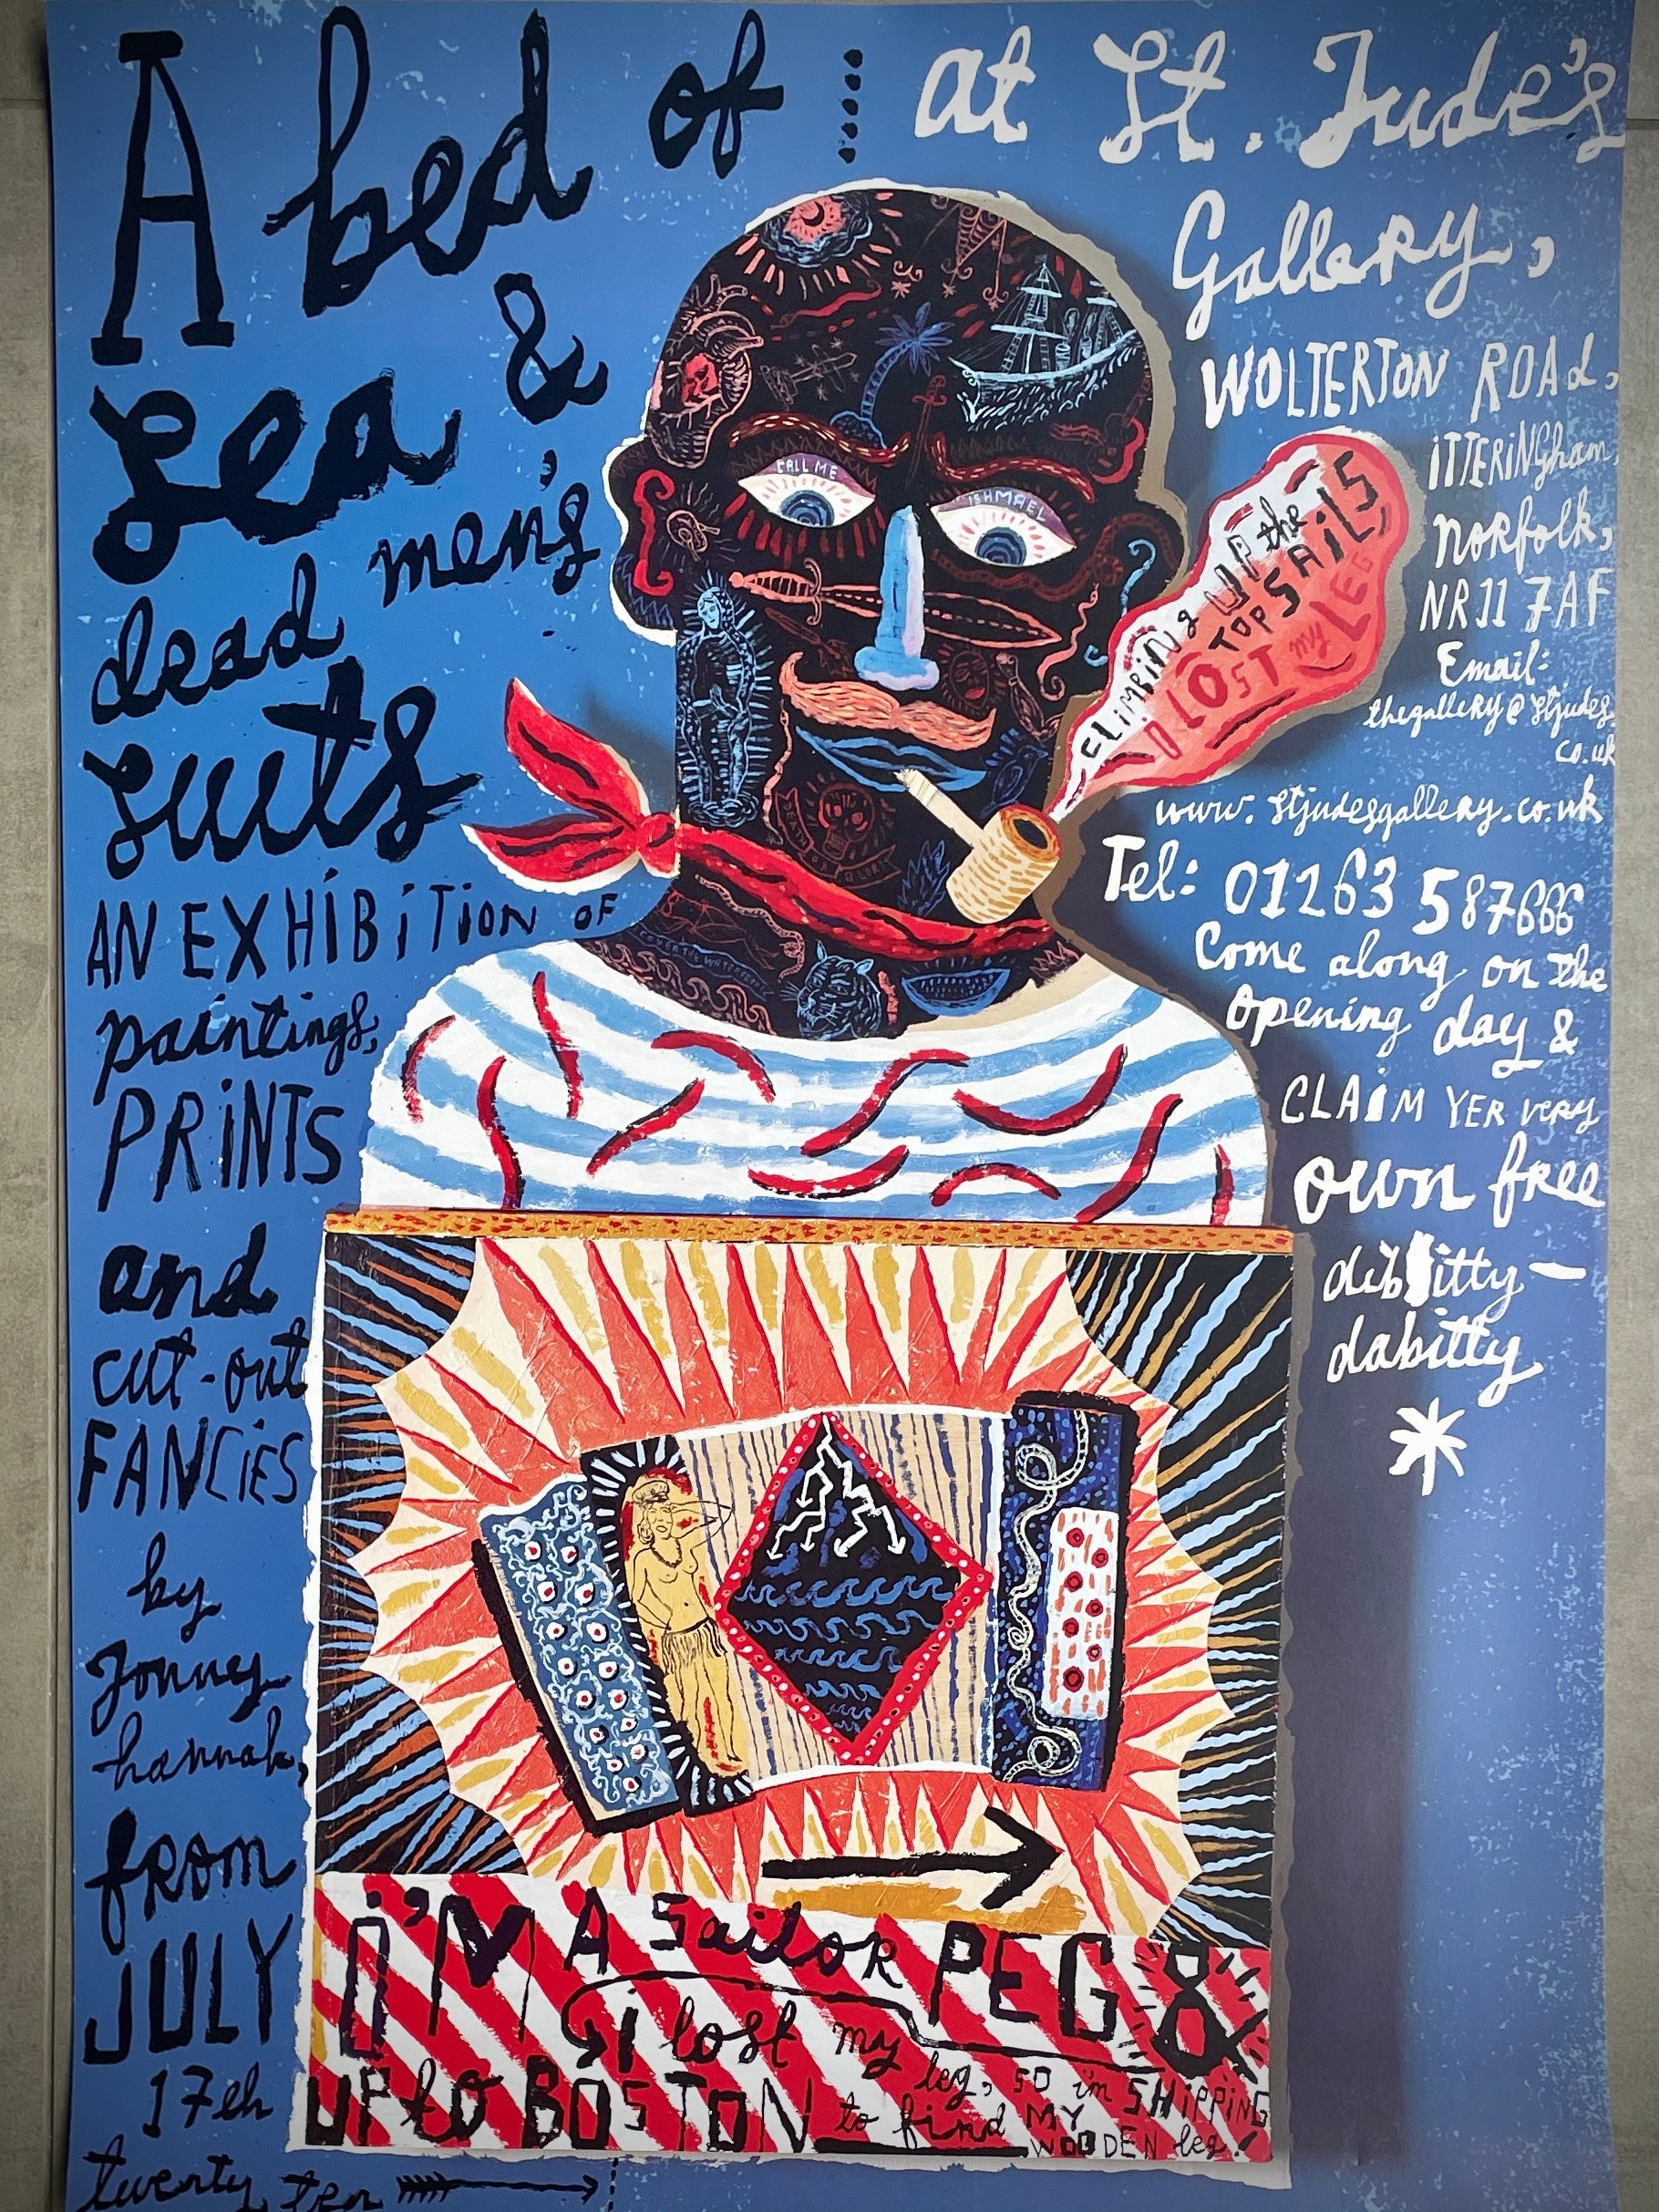 A bed of ....
Sea &
dead men's
suits
AN EXHIBITION OF
paintings,
PRINTS
and
cut-out
FANCIES
by
Jonny
hannah,
from
JULY
17th
twenty ten
at St. Jude's
Gallery,
WOLTERTON ROAd,
iTTERiNgham,
NoRfolk,
NR11 7AF
Email:
thegalleRy@stjudes.
co.uk
www.stjudesgallery.co.uk
Tel: 01263 587666
Come along on the
opening day &
CLAiM YER very
own free
dibbitty-
dabitty
*
CALL ME
ISHMAEL
CLiMBiNg UP the
TOPSAiLS,
I LOST my LEG
I'M A SailoR PEG &
I lost my leg, so im SHiPPiNG
UP to BOSTON to find MY
WOODEN leg!